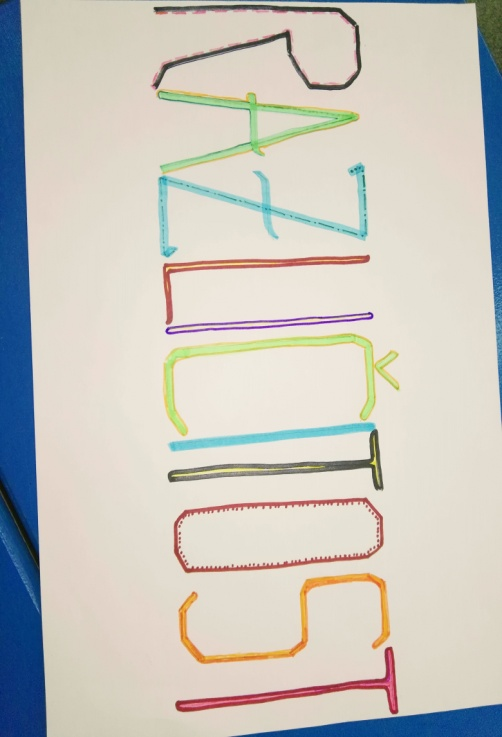 RAZLIČITOST